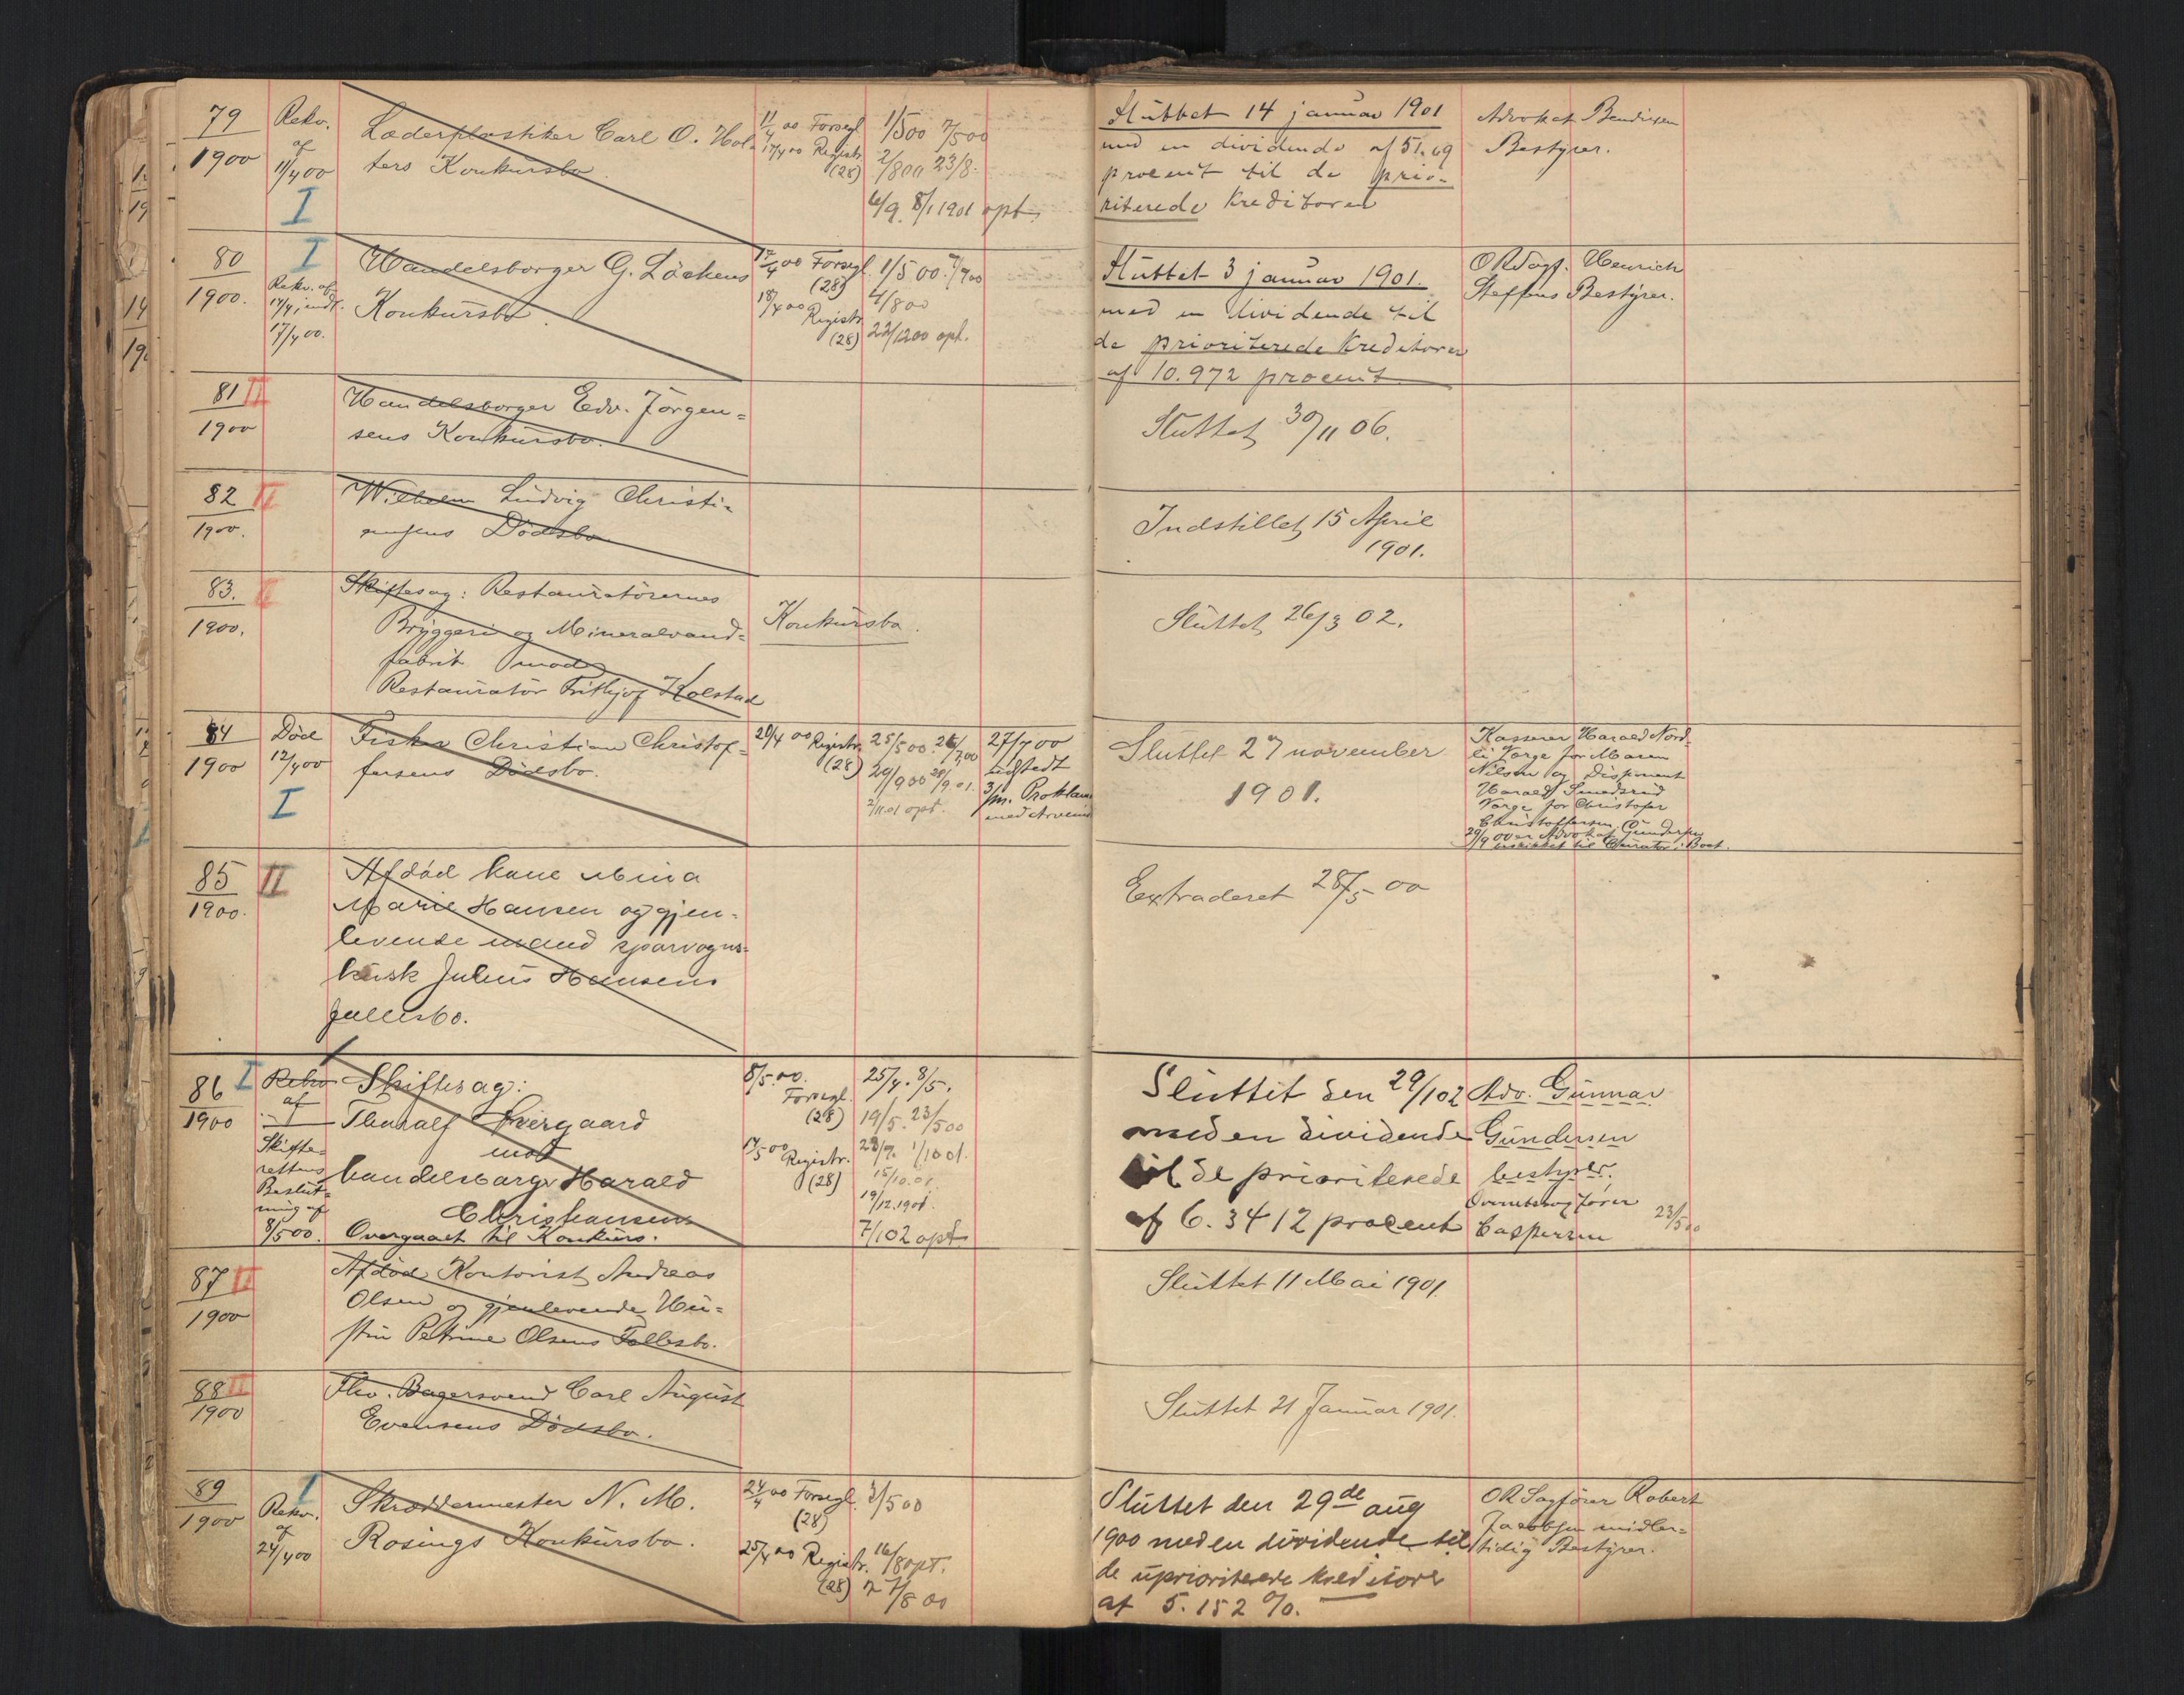 79
1900
Rekv.
af
11/4 00
I
Læderplastiker Carl O. Hol-
ters Konkursbo.
11/4 00 Forsegl.
17/4 00 Registr.
(28)
1/5 00 7/5 00
2/8 00 23/8.
4/9. 8/1 1901 opt.
Sluttet 14 januar 1901
med en dividende af 51.69
procent til de prio-
riterede Kreditorer
Advokat Bendixen
Bestyrer.
80
1900.
I
Rekv. af
17/4, indl.
17/4 00.
Handelsborger G. Löckens
Konkursbo.
17/4 00 Forsegl.
(28)
18/4 00
Registr.
(28)
1/5 00. 7/7 00
4/8 00
22/12 00 opt.
Sluttet 3 januar 1901.
med en dividende til
de prioriterede Kreditorer
af 10.972 procent
ORSagf. Henrich
Steffens Bestyrer.
81 II
1900
Handelsborger Edv. Jörgen=
sens Konkursbo.
Sluttet 30/11 06.
82 II
1900.
Wilhelm Ludvig Christi=
ansens Dödsbo
Indstillet 15 April
1901.
83. II
1900.
Skiftesag: Restauratörernes
Bryggeri og Mineralvand=
fabrik mod
Restauratör Frithjof Kolstad
Konkursbo.
Sluttet 26/3 02.
84
1900
Död
12/4 00
I
Fisker Christian Christof=
fersens Dödsbo.
20/4 00 Registr.
(28)
25/5 00. 26/7 00
29/9 00 28/9 01.
2/11.01 opt.
27/7 00
udstedt
3/m. Proklama
med Arveind
Sluttet 27 november
1901.
Kasserer Harald Nord-
li Værge for Maren
Nilsen og Disponent
Harald Smedsrud
Værge for Christofer
Christoffersen.
29/9 00 er Advokat Gundersen
beskikket til Curator i Boet.
85 II
1900.
Afdød kone Mina
Marie Hansen og gjen-
levende mand sporvogns-
kusk Julius Hansens
fællesbo.
Extraderet 28/5 00
86 I
1900
Rekv
af
Skifte-
rettens
Beslut-
ning af
8/5 00.
Skiftesag:
Thoralf Kiergaard
mod
handelsborger Harald
Christiansen
Overgaaet til Konkurs.
8/5.00.
Forsegl.
(28)
17/5 00
Registr.
(28)
25/4. 8/5.
19/5. 23/5 00
28/9. 1/10 01.
15/10.01.
19/12.1901.
7/1 02 opt.
Sluttet den 29/1 02
med en dividende
til de prioriterede
af 6.3412 procent
Adv. Gunnar
Gundersen
bestyrer.
Overretssagfører
Caspersen
23/5 00
87 II
1900
Afdöd Kontorist Andreas
Olsen og gjenlevende Hu=
stru Petrine Olsens Fællesbo.
Sluttet 11 Mai 1901
88 II
1900
Fhv. Bagersvend Carl August
Evensens Dödsbo.
Sluttet 21 Januar 1901.
89
1900
I
Rekv.
af
24/4 00
Skræddermester N. M.
Rosings Konkursbo.
24/4 00 Forsegl.
(28)
25/4 00 Registr.
(28)
3/5 00
16/8 opt.
27/8 00
Sluttet den 29de aug
1900 med en dividende til
de upriorterede kreditorer
af 5.152 %.
OR Sagförer Robert
Jacobsen midler=
tidig Bestyrer.